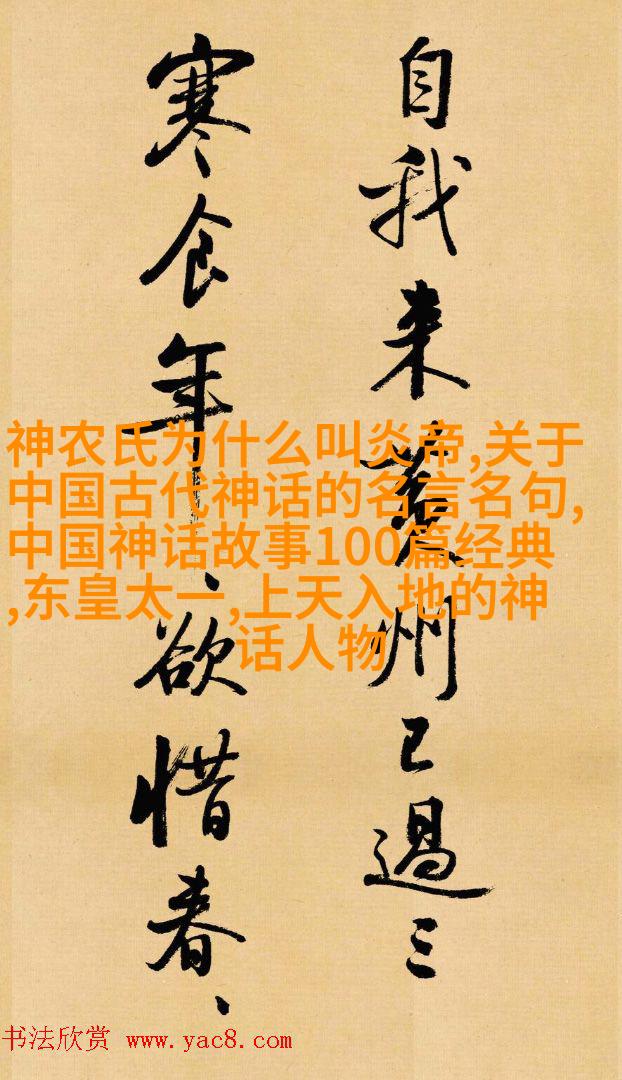 自我来黄州已過三
寒食年、欲惜春、
神农氏为什么叫炎帝,关于
中国古代神话的名言名句,
中国神话故事100篇经典
,东皇太一,上天入地的神
话人物
书法欣赏 www.yac8.com